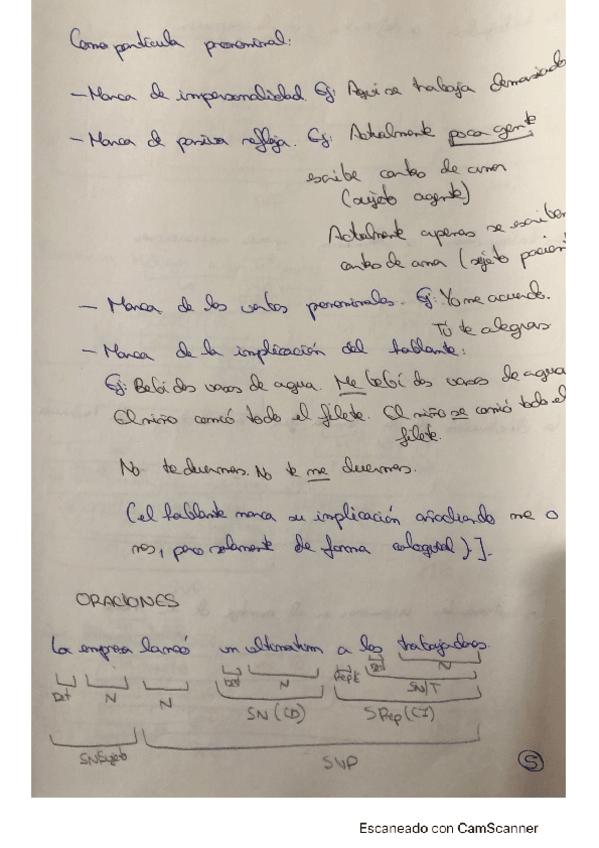 Como partícula pronominal:
- Marca de impersonalidad. Ej: Aquí se trabaja demasiado
- Marca de pasiva refleja. Ej: Actualmente poca gente
escribe cartas de amor
(sujeto agente)
Actualmente apenas se escriben
cartas de amor (sujeto pacien
- Marca de los verbos pronominales. Ej: Yo me acuerdo.
Tú te alegras
- Marca de la implicación del hablante:
Ej: Bebí dos vasos de agua. Me bebí dos vasos de agua
El niño comió todo el filete. El niño se comió todo el
filete.
No te duermas. No te me duermas.
(el hablante marca su implicación añadiendo me o
nos, pero solamente de forma coloquial)].
ORACIONES
La empresa lanzó un ultimatum a los trabajadores.
Dt N N Dt N Prep E Dt N
SN (CD) SN/T
SPrep (CI)
SNSujeto SVP
5
Escaneado con CamScanner